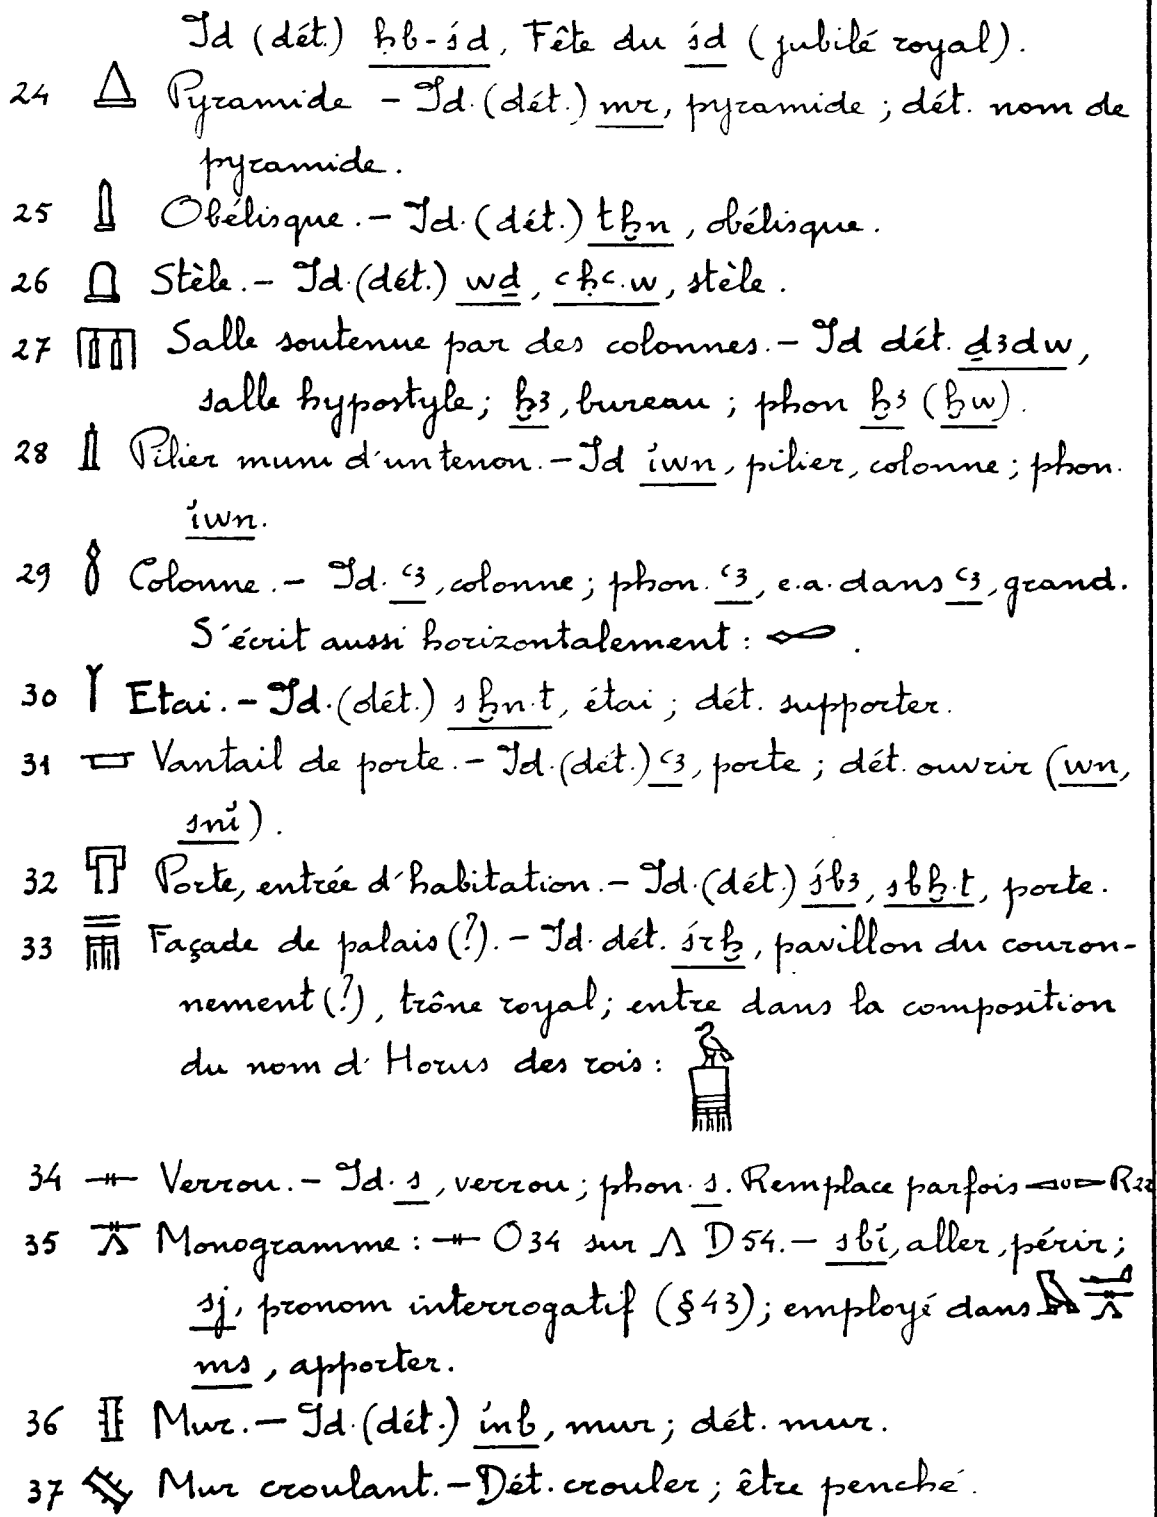 Id (dét.) ḥb-śd, Fête du śd (jubilé royal).
24 𓉴 Pyramide – Id. (dét.) mr, pyramide ; dét. nom de
pyramide.
25 𓉶 Obélisque. – Id. (dét.) tḫn, obélisque.
26 𓉸 Stèle. – Id. (dét.) wḏ, ʿḥʿ.w, stèle.
27 𓉹 Salle soutenue par des colonnes. – Id dét. ḏꜣdw,
salle hypostyle; ḫꜣ, bureau ; phon ḫꜣ (ḫw).
28 𓉺 Pilier muni d'un tenon. – Id iwn, pilier, colonne ; phon.
iwn.
29 𓉼 Colonne. – Id. ʿꜣ, colonne ; phon. ʿꜣ, e.a. dans ʿꜣ, grand.
S'écrit aussi horizontalement : 𓉻.
30 𓉾 Etai. – Id. (dét.) sḫn.t, étai ; dét. supporter.
31 𓉿 Vantail de porte. – Id. (dét.) ʿꜣ, porte ; dét. ouvrir (wn,
sni).
32 𓊀 Porte, entrée d'habitation. – Id. (dét) śbꜣ, sbḫ.t, porte.
33 𓊁 Façade de palais (?). – Id. dét. śrḫ, pavillon du couron-
nement (?), trône royal; entre dans la composition
du nom d'Horus des rois :
34 𓊃 Verrou. – Id. s, verrou ; phon. s. Remplace parfois 𓊿 R22
35 𓊄 Monogramme : 𓊃 O34 sur 𓂻 D54. – sbi, aller, périr ;
sj, pronom interrogatif (§43); employé dans
ms, apporter.
36 𓊅 Mur. – Id. (dét.) inb, mur ; dét. mur.
37 𓊊 Mur croulant. – Dét. crouler ; être penché.